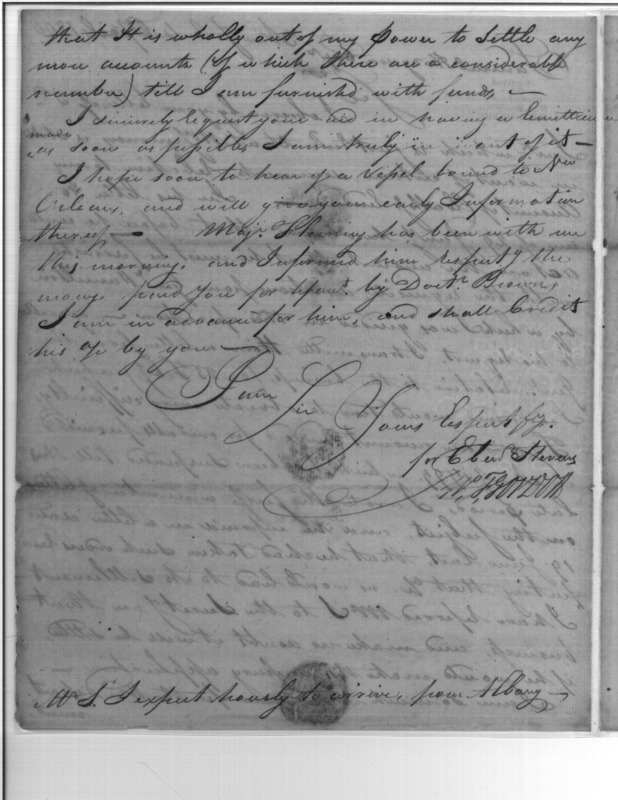 that It is wholly out of my power to settle any
more accounts (of which there are a considerable
number) till I am furnished with funds, —
I sincerely request your aid in having a Remittance
made
as soon as possible I am truly in want of it —
I hope soon to hear of a Vessel bound to New
Orleans, and will give you early Information
thereof — Majr. Fleming has been with me
this morning, and I informed him respectg the
money paid you for him by Doctr Brown,
I am in advance for him, and shall Credit
his a/c by you —
I am
Sir
Yours Respectfy.
for Eben Stevens
Mr S. I expect hourly to arrive, from Albany —